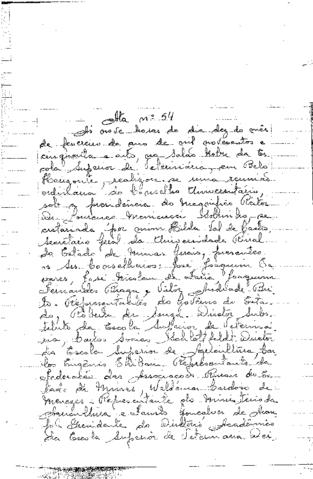 Ata nº 54
Às nove horas do dia dez do mês
de fevereiro do ano de mil novecentos e
cinquenta e oito, no salão nobre da Es-
cola Superior de Veterinária, em Belo
Horizonte, realizou-se uma reunião
ordinária do Conselho Universitário,
sob a presidência do Magnífico Reitor
Dr. Lourenço Menicucci Sobrinho, se-
cretariada por mim Hilda Val de Castro,
secretária Geral da Universidade Rural
do Estado de Minas Gerais, presentes
os Srs. Conselheiros: José Joaquim
José Nicolau de Joaquim
Fernandes Braga e Vitor Andrade Bri-
to - Representantes do Governo do Esta-
do, Roberto de Souza - Diretor Subs-
tituto da Escola Superior de Veterina-
ria, Carlos Socias Schlottfeldt, Diretor
da Escola Superior de Agricultura
Eugênio Representante da
Federação das Associações Rurais do Es-
tado de Minas, Waldemar Cardoso de
Menezes - Representante do Ministério da
Agricultura e Gonçalves de
Presidente do Diretório Acadêmico
da Escola Superior de Veterinaria.